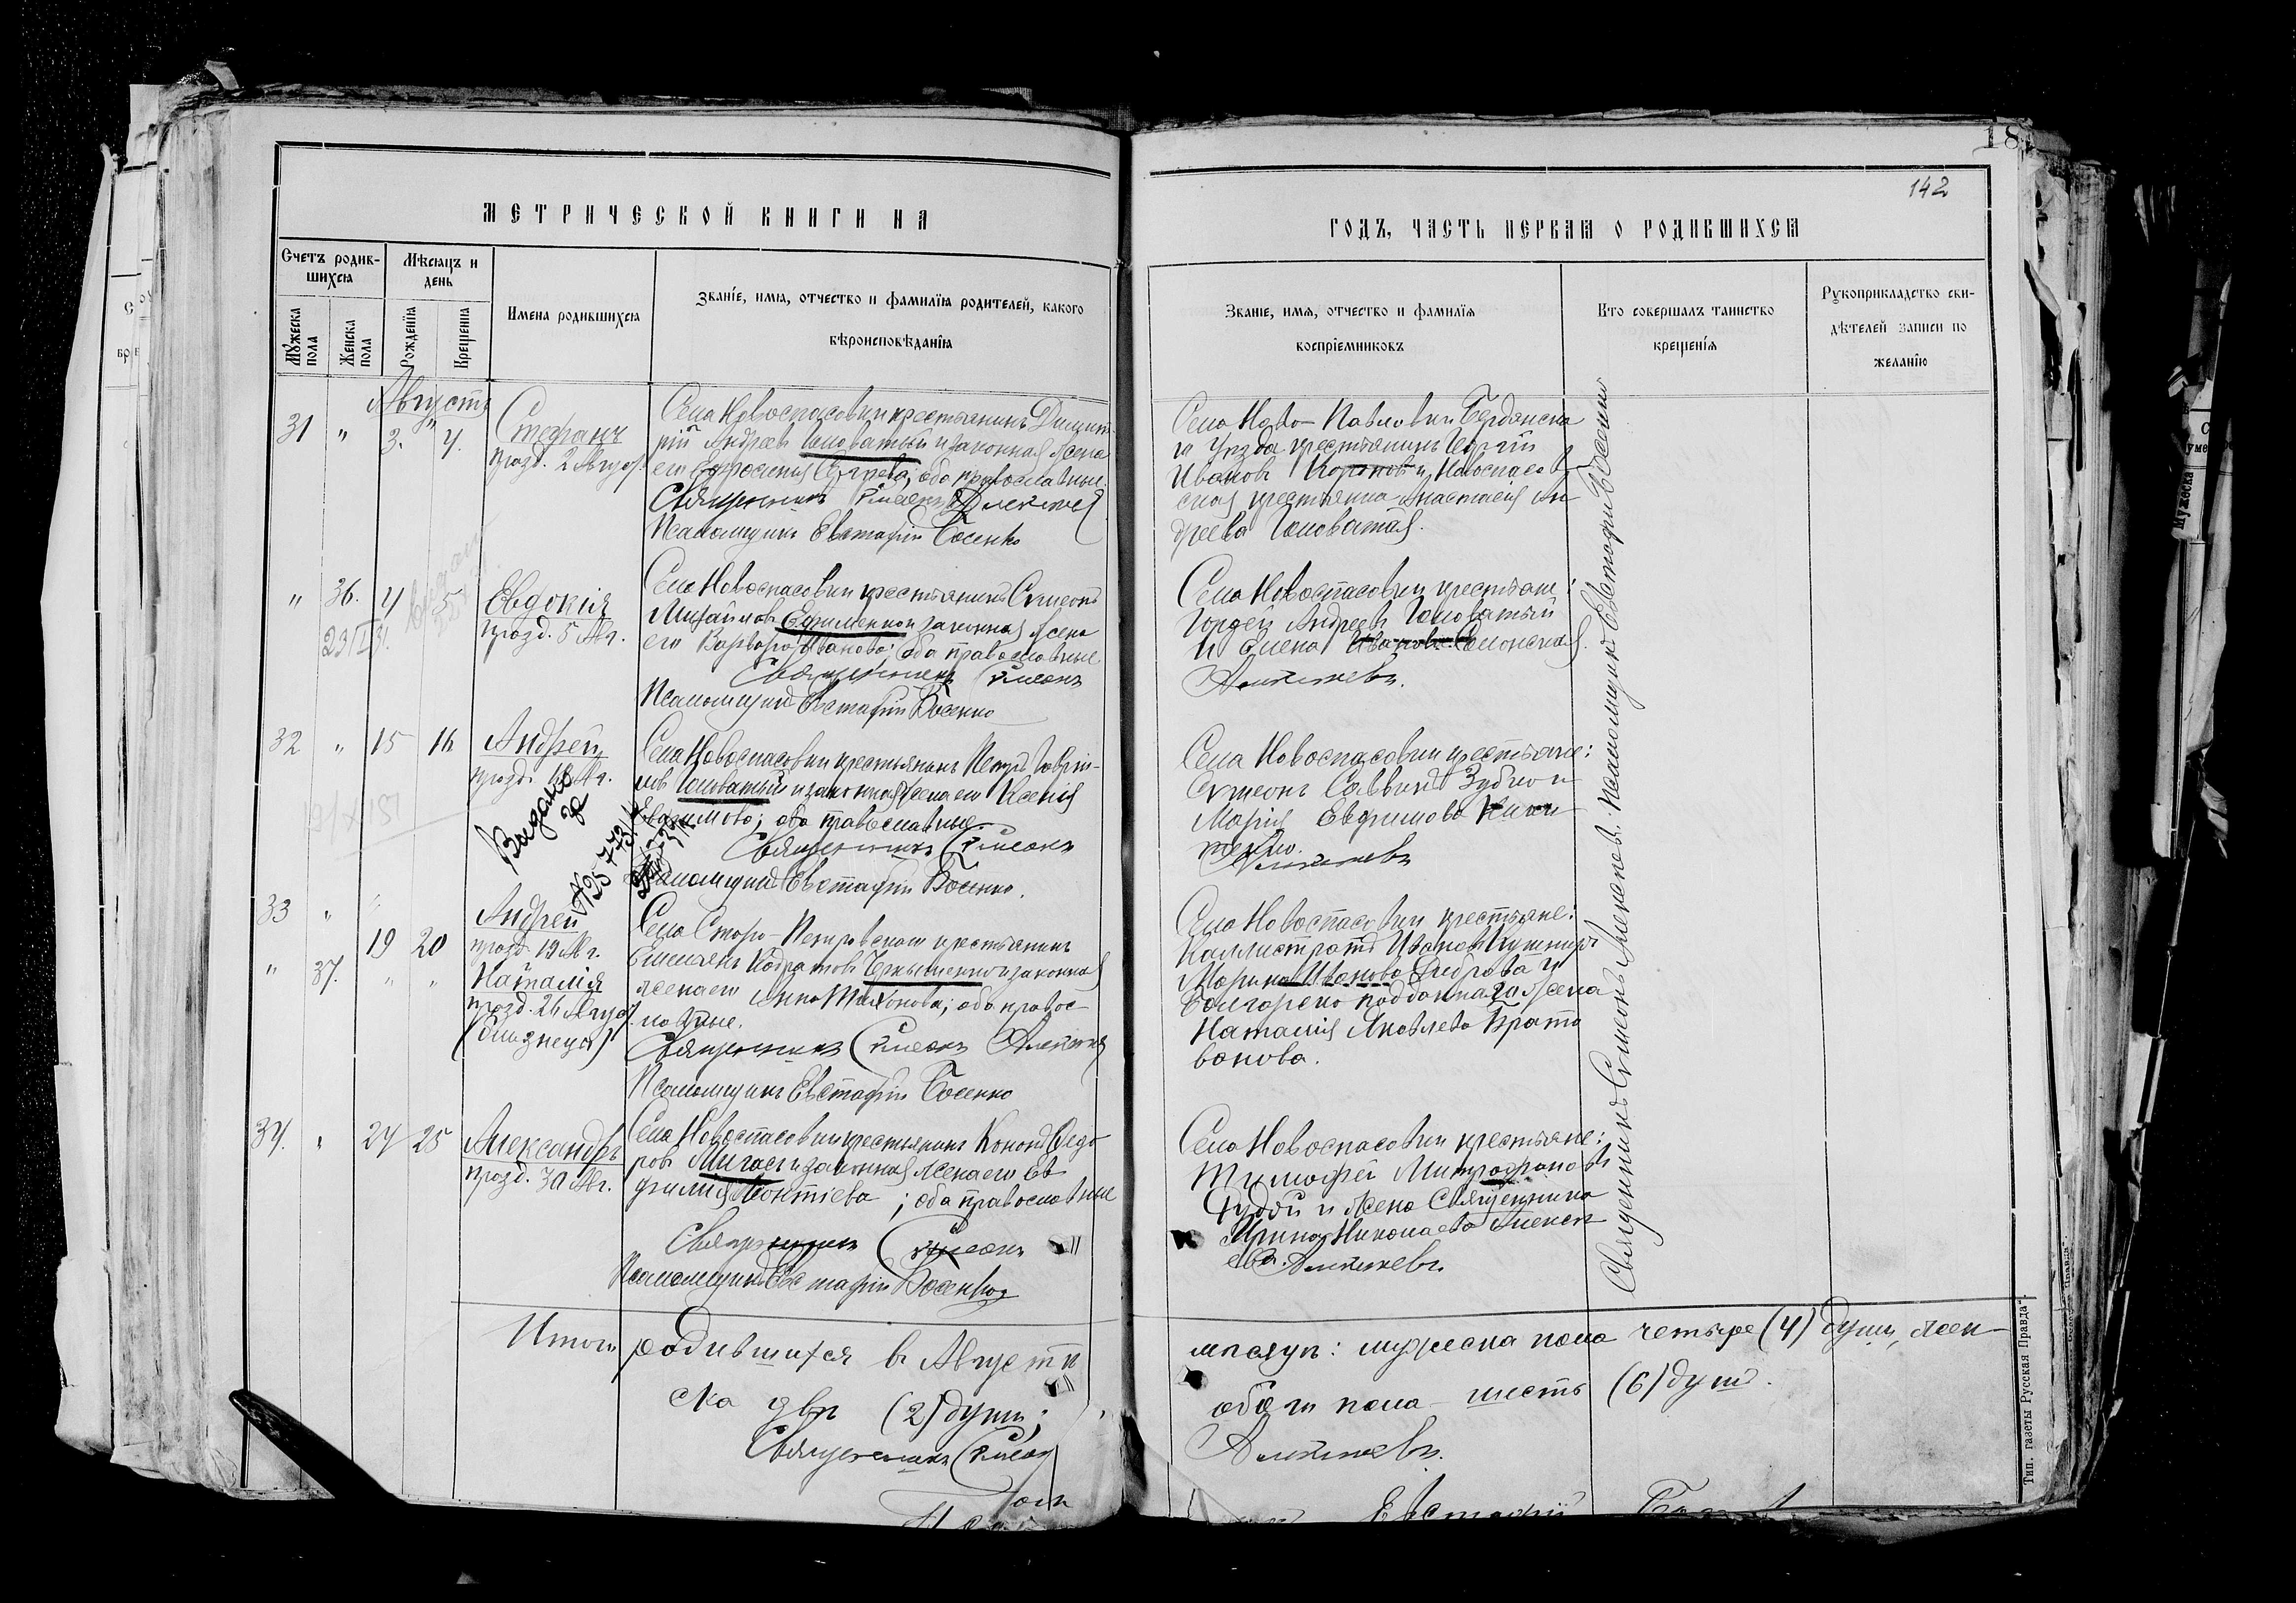 18
142
МЕТРИЧЕСКОЙ КНИГИ НА
ГОДЪ, ЧАСТЬ ПЕРВАЯ О РОДИВШИХСЯ
Счетъ родив-
шихся
Мужеска
пола
Женска
пола
Мѣсяцъ и
день
Рожденія
Крещенія
Имена родившихся
Званіе, имя, отчество и фамилія родителей, какого
вѣроисповѣданія
Званіе, имя, отчество и фамилія
воспріемниковъ
Кто совершалъ таинство
крещенія
Рукоприкладство сви-
дѣтелей записи по
желанію
Августъ
31 " 3. 4.
Стефанъ
празд. 2 Август.
Села Новоспасовки крестьянинъ Димит-
рій Андреевъ Головатый и законная жена
его Евфросинія; оба православные.
Священникъ Симеонъ Алексѣевъ
Псаломщикъ Евстафій Босенко
Села Ново-Павловки Бердянска
го уѣзда крестьянинъ Георгій
Ивановъ и Новоспасов
ская крестьянка Анастасія Ан
дреева Головатая.
" 36. 4 5
23/I 31.
Евдокія
празд. 5 Авг.
Села Новоспасовки крестьянинъ Симеонъ
Михайловъ Ефименко и законная жена
его Варвара Иванова; оба православные
Священникъ Симеонъ
Псаломщикъ Евстафій Босенко
Села Новоспасовки крестьяне:
Гордей Андреевъ Головатый
и Елена Иванова
Алексѣевъ.
32 " 15 16
Андрей
празд. 19 Авг.
Села Новоспасовки крестьянинъ Петръ Гаврии-
ловъ Головатый и законная жена его Ксенія
Евфимова; оба православные
Священникъ Симеонъ
Псаломщикъ Евстафій Босенко.
Села Новоспасовки крестьяне:
Симеонъ Саввинъ Зубко и
Марія Евфимова
Алексѣевъ
Выдано
33 "
19 20
Андрей
празд. 19 Авг.
" 37. " "
Наталія
празд. 26 Август.
(близнецы)
Села Старо-Петровскаго крестьянинъ
Емельянъ Кодратовъ и законная
жена его Анна Тихонова; оба правос-
лавные.
Священникъ Симеонъ Алексѣевъ
Псаломщикъ Евстафій Босенко
Села Новоспасовки крестьяне:
Каллистратъ Ивановъ Кушниръ
Марина Иванова и
Болгарско подданнаго жена
Наталія Яковлева Брато
ванова.
34. " 24 25
Александръ
празд. 30 Авг.
Села Новоспасовки крестьянинъ Кононъ Ѳедо
ровъ Мигаси и законная жена его Ев
фимія Леонтіева; оба православные
Священникъ Симеонъ
Псаломщикъ Евстафій Босенко
Села Новоспасовки крестьяне:
Тимофей Митрофановъ
Чудой и жена Священника
Ирина Николаева Алексѣ
ева. Алексѣевъ.
Священникъ Симеонъ Алексѣевъ. Псаломщикъ Евстафій Босенко
Итого родившихся въ Августѣ
мѣсяцѣ: мужеска пола четыре (4) души, жен-
ска двѣ (2) души;
обоего пола - шесть (6) душъ.
Священникъ Симеонъ
Алексѣевъ.
Евстафій
Тип. газеты "Русская Правда".